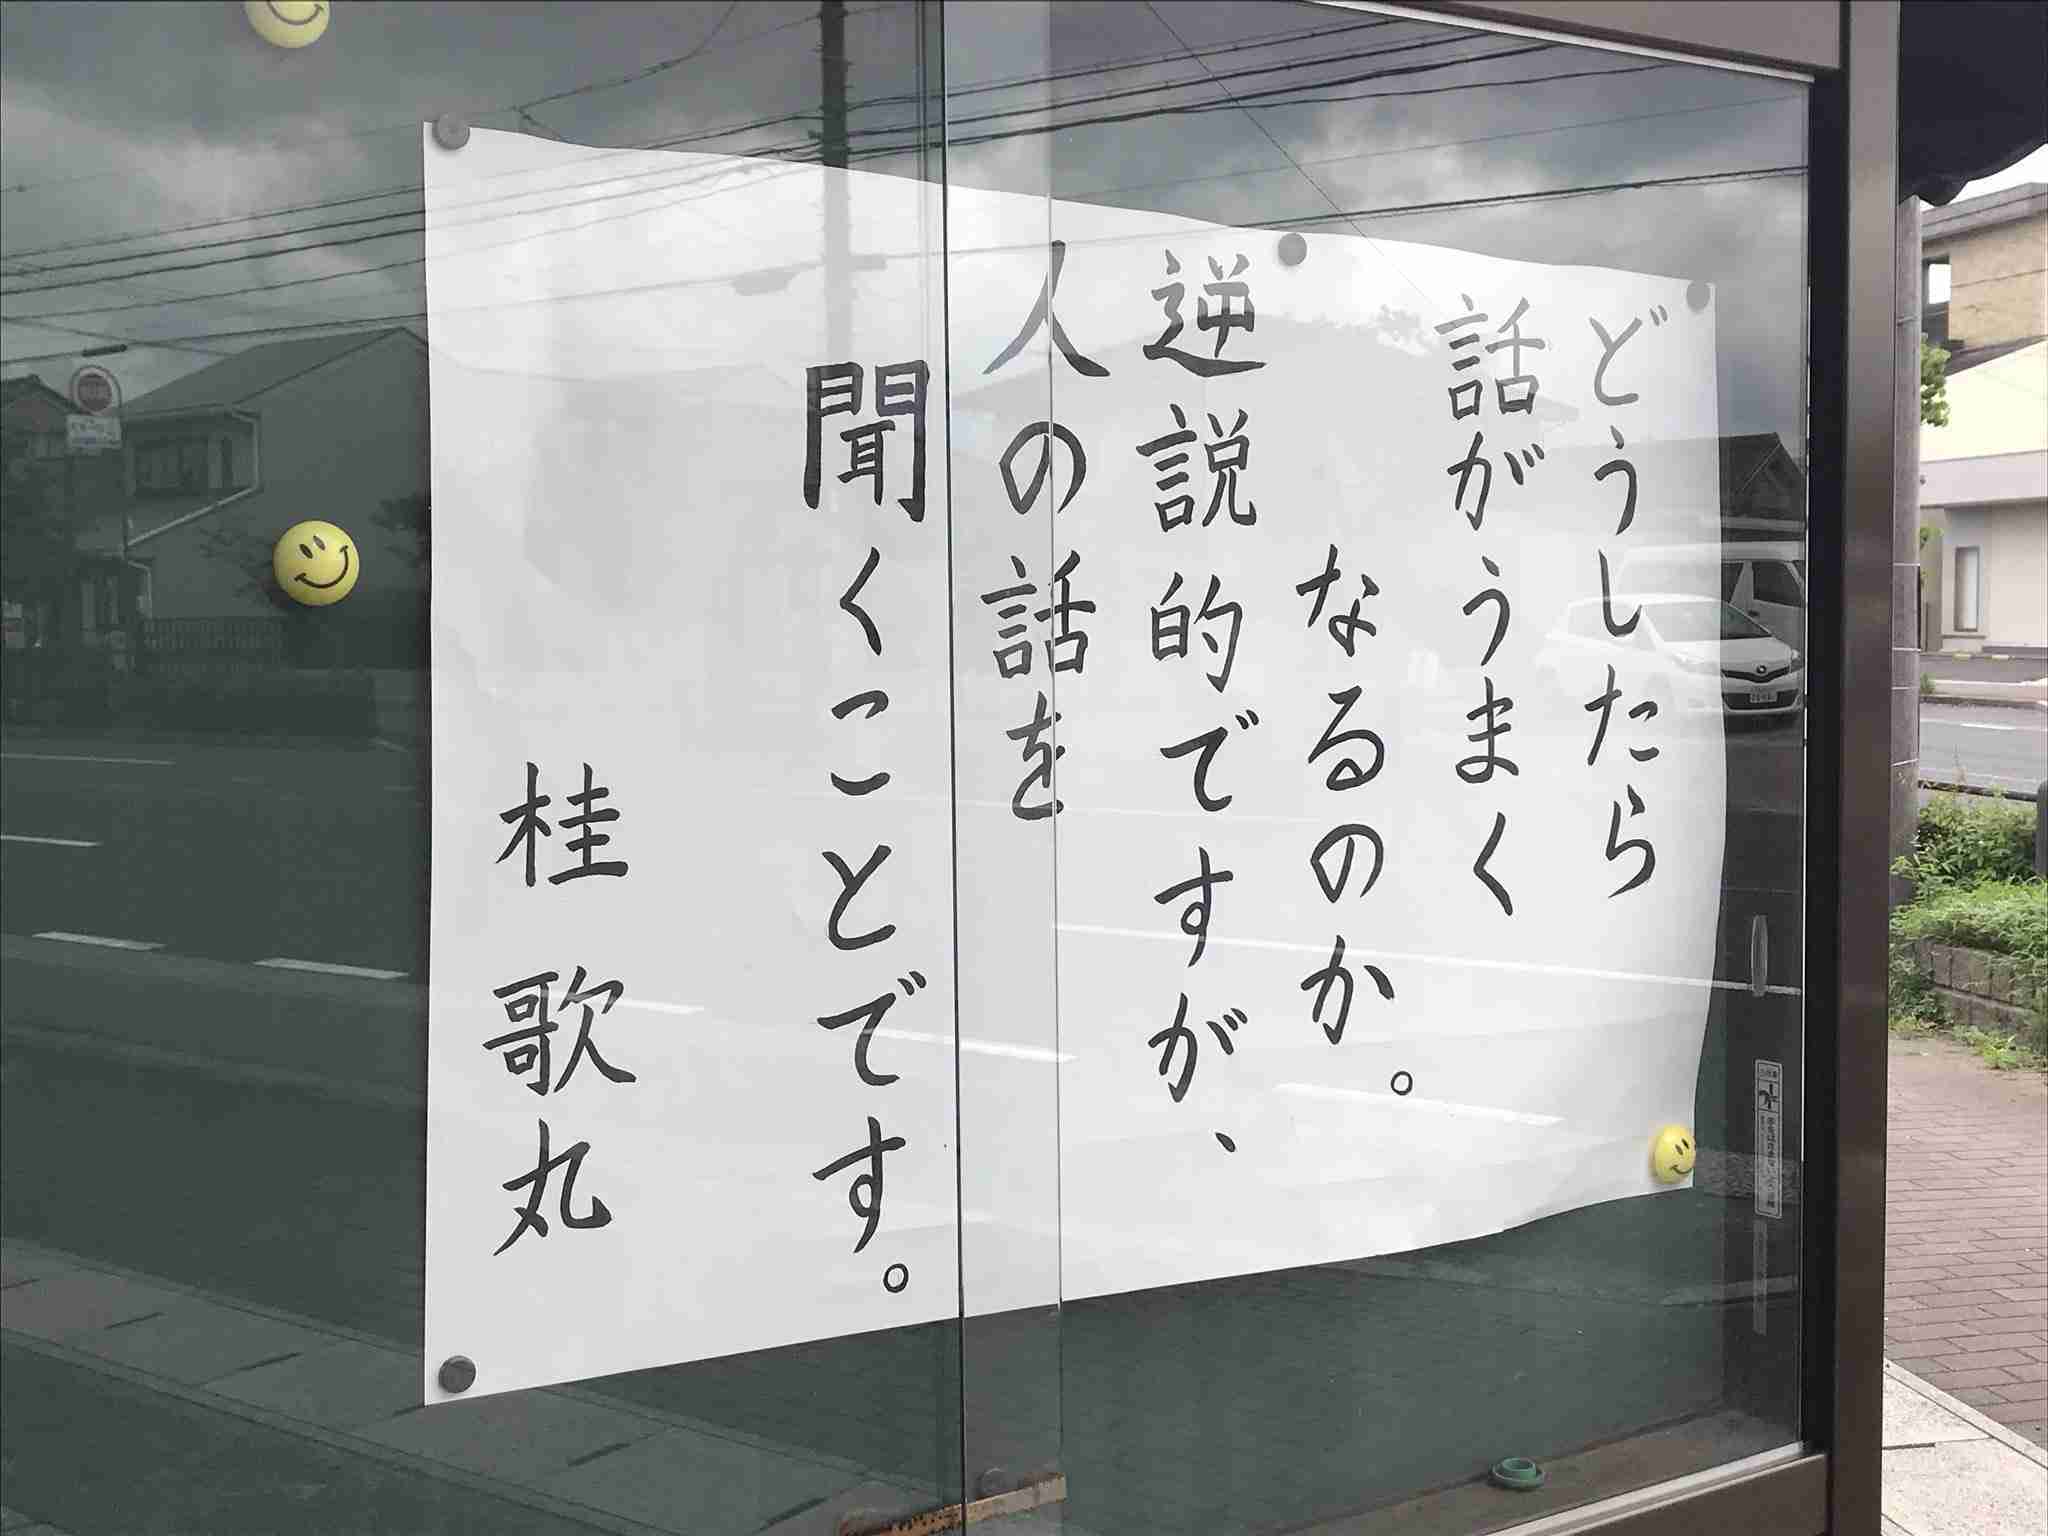 どうしたら
話がうまく
なるのか。
逆説的ですが、
人の話を
聞くことです。
桂歌丸